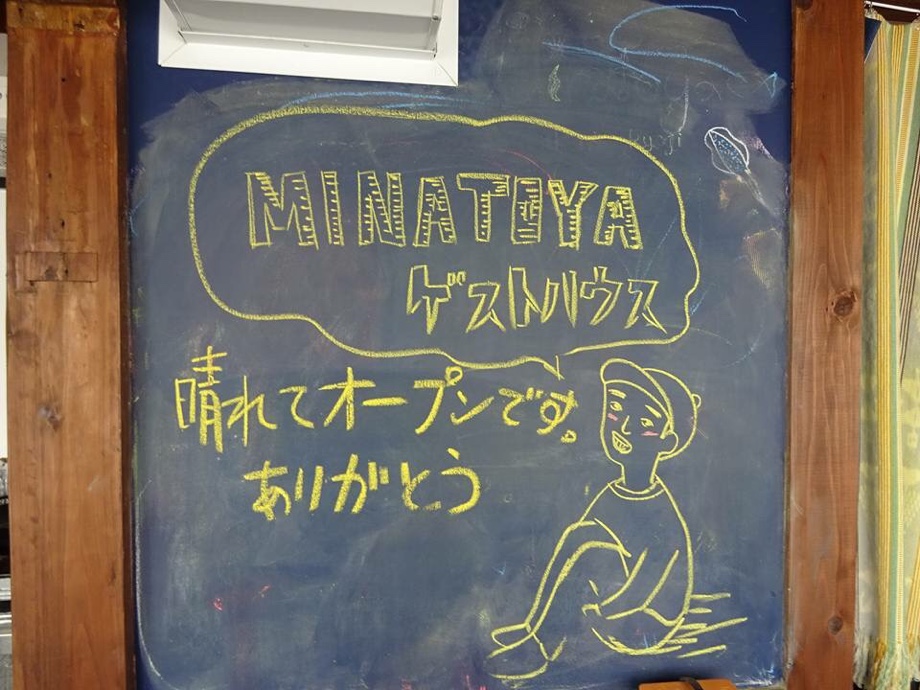 MINATOYA
ゲストハウス
晴れてオープンです。
ありがとう